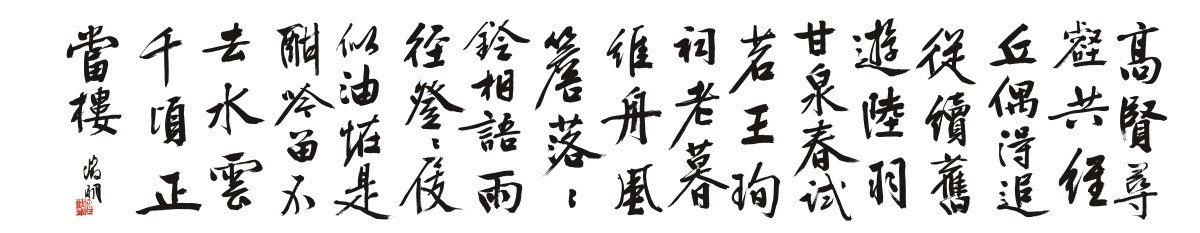 高賢尋
壑共經
丘偶得追
從續舊
遊陸羽
甘泉春試
茗王珣
祠老暮
維舟風
簷落〻
鈴相語雨
徑登〻屐
似油恠是
酣吟留不
去水雲
千頃正
當樓